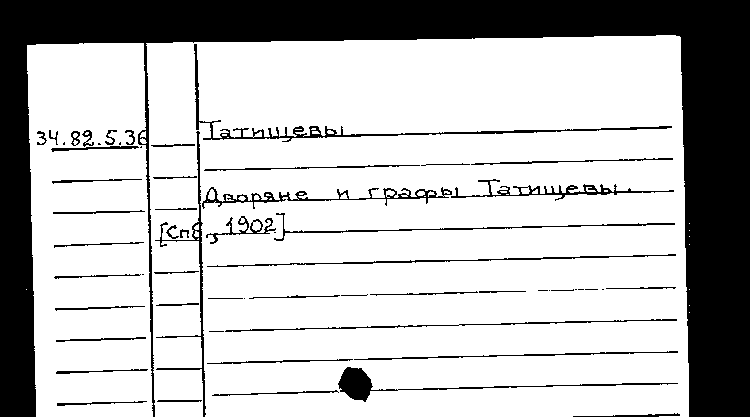 34.82.5.36 Татищевы
Дворяне и графы Татищевы.
[Спб., 1902]